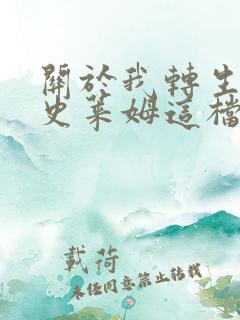 關於我轉生
史萊姆這檔
載荷
未任同意禁止轉載